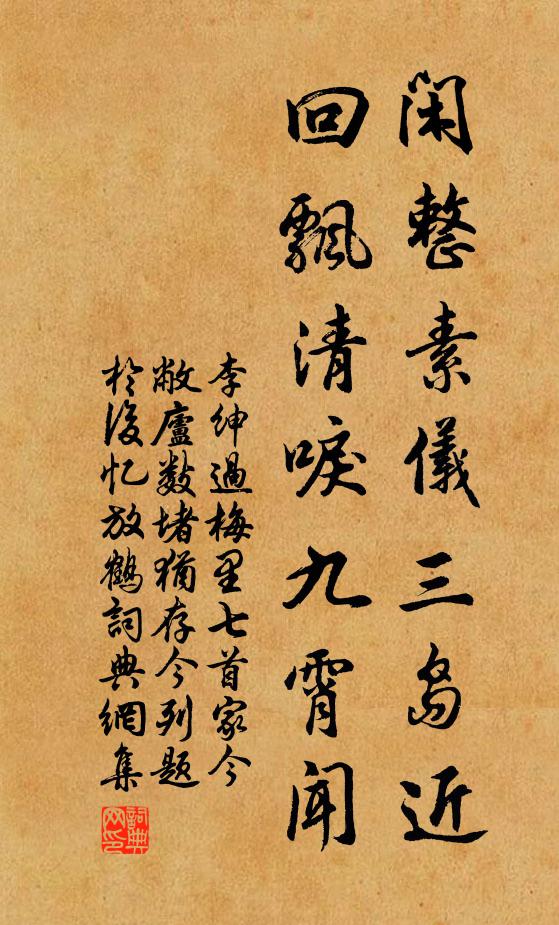 闲整素儀三岛近
回飄清唳九霄闻
李绅過梅里七首家今
敝廬数堵猶存今列题
於後忆放鶴詞典網集
詞典网印